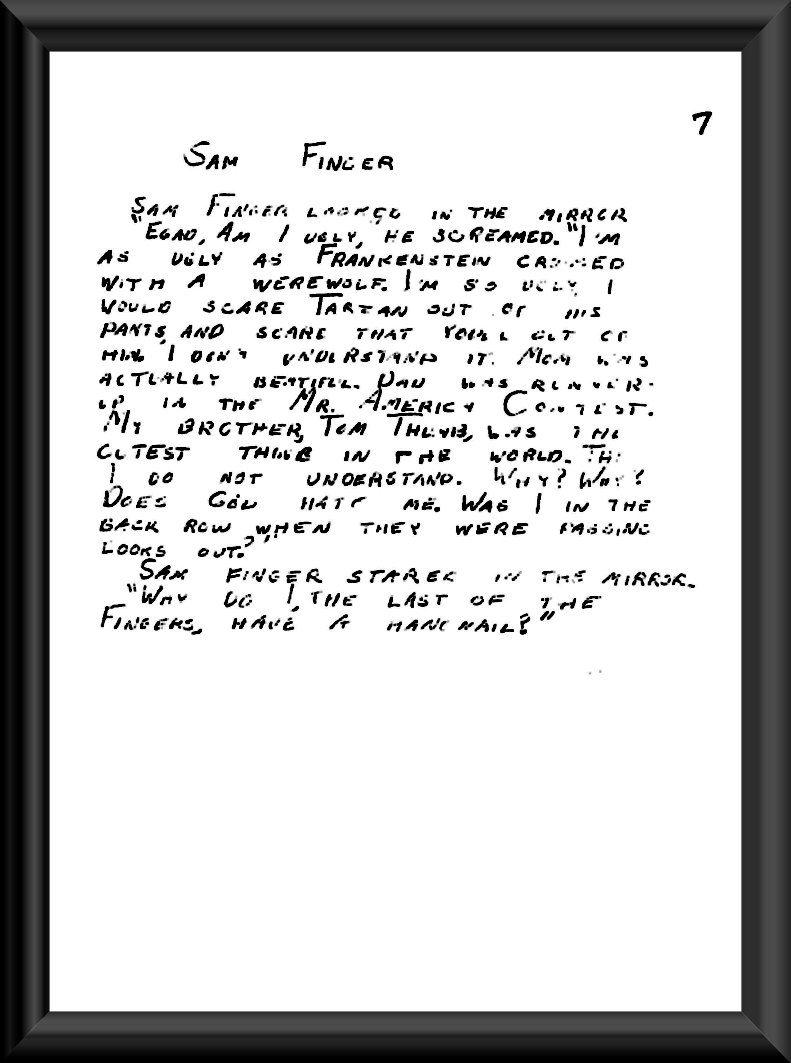 7
SAM FINGER
SAM FINGER LOOKED IN THE MIRROR
"EGAD, AM I UGLY, HE SCREAMED. "I'M
AS UGLY AS FRANKENSTEIN CROSSED
WITH A WEREWOLF. I'M SO UGLY, I
WOULD SCARE TARZAN OUT OF HIS
PANTS, AND SCARE THAT YOU'LL OUT OF
HIM. I DON'T UNDERSTAND IT. MOM WAS
ACTUALLY BEATIFUL. DAD WAS RUNNER-
UP IN THE MR. AMERICA CONTEST.
MY BROTHER, TOM THUMB, WAS THE
CUTEST THUMB IN THE WORLD.
I DO NOT UNDERSTAND. WHY? WHY?
DOES GOD HATE ME. WAS I IN THE
BACK ROW WHEN THEY WERE PASSING
LOOKS OUT?"
SAM FINGER STARED IN THE MIRROR.
"WHY DO I, THE LAST OF THE
FINGERS, HAVE A HANGNAIL?"